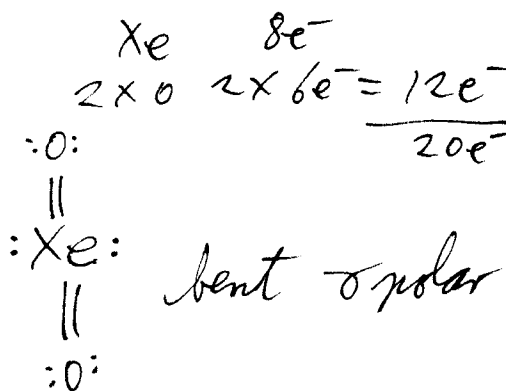 Xe 8e⁻
2 x 0 2 x 6e⁻ = 12e⁻
20e⁻
:O:
||
:Xe: bent & polar
||
:O: